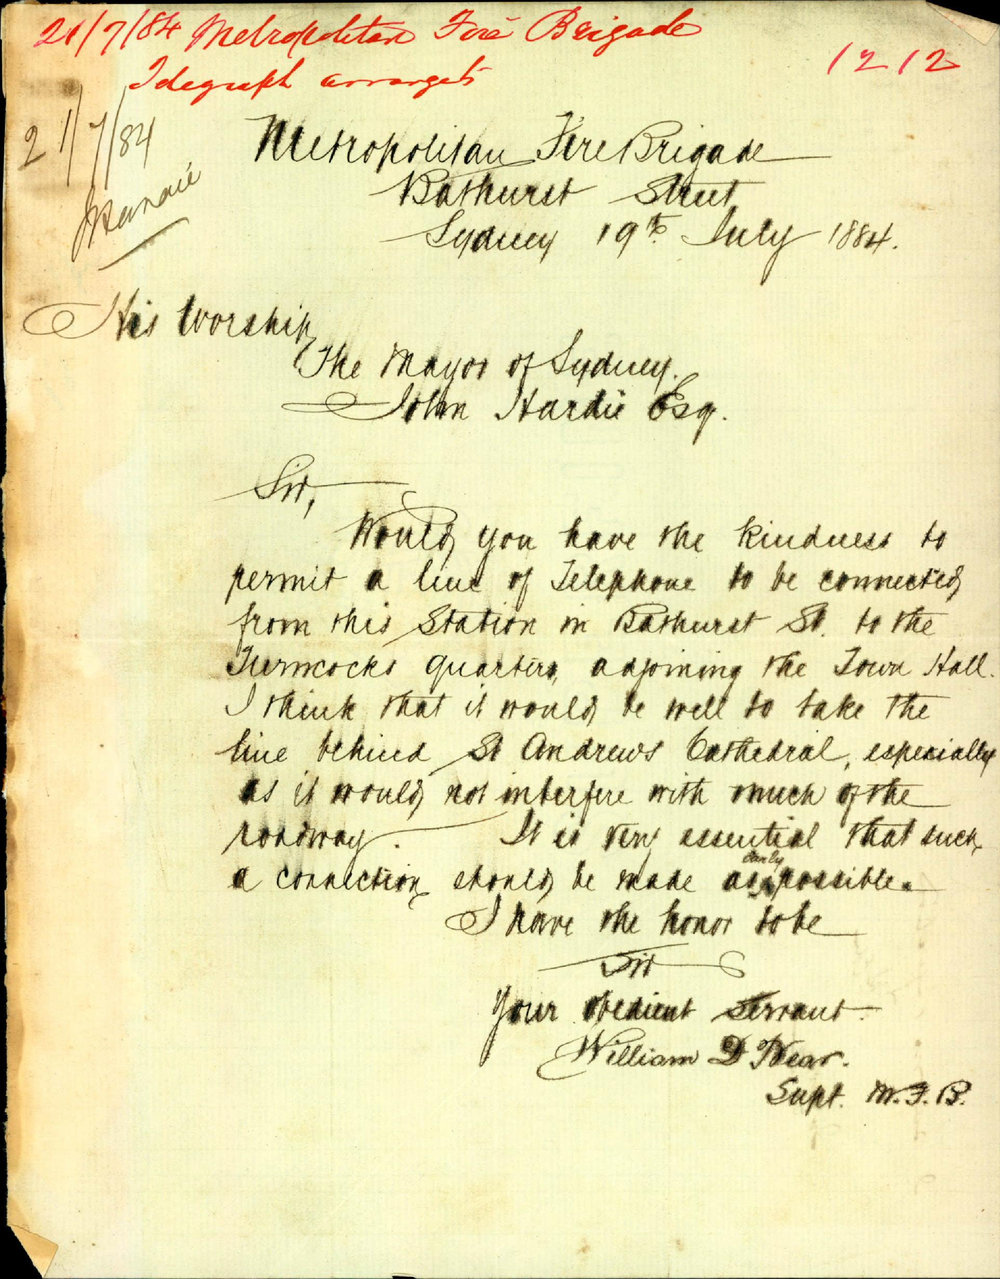 21/7/84 Metropolitan Fire Brigade
Telegraph arrangts
1212
21/7/84
Metropolitan Fire Brigade
Bathurst Street
Sydney 19th July 1884.
His Worship,
The Mayor of Sydney.
John Hardie Esq.
Sir,
Would you have the kindness to
permit a line of Telephone to be connected
from this Station in Bathurst St. to the
Turncocks quarters, adjoining the Town Hall.
I think that it would be well to take the
line behind St Andrews Cathedral, especially
as it would not interfere with much of the
roadway. It is very essential that such
a connection should be made as early possible.
I have the honor to be
Sir
Your obedient Servant
William D Bear.
Supt. M.F.B.